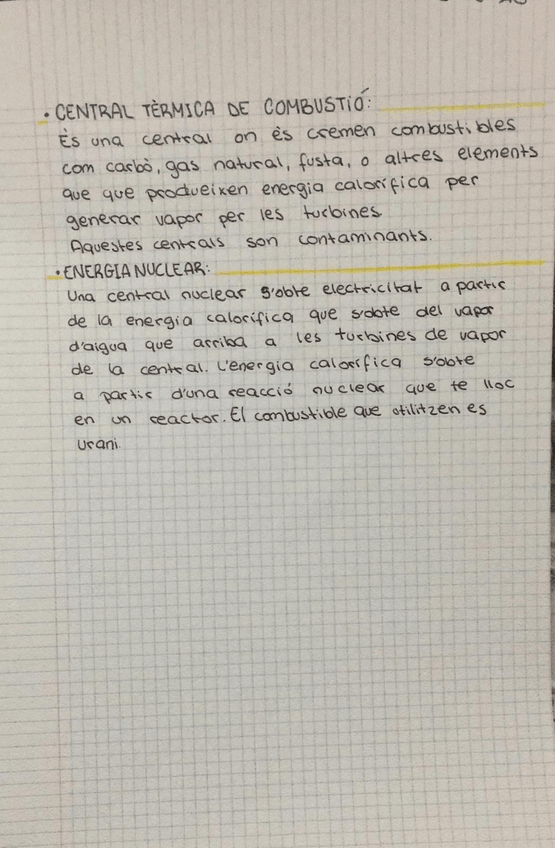 · CENTRAL TÈRMICA DE COMBUSTIÓ:
És una central on és cremen combustibles
com carbó, gas natural, fusta, o altres elements
que que produeixen energia calorífica per
generar vapor per les turbines
Aquestes centrals son contaminants.
· ENERGIA NUCLEAR:
Una central nuclear s'obte electricitat a partir
de la energia calorífica que s'obte del vapor
d'aigua que arriba a les turbines de vapor
de la central. L'energia calorífica s'obte
a partir d'una reacció nuclear que te lloc
en un reactor. El combustible que utilitzen es
urani.